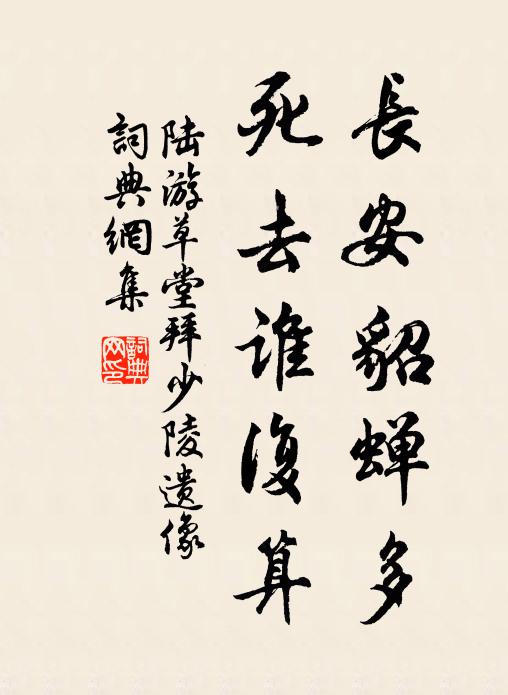 長安貂蝉多
死去誰復算
陆游草堂拜少陵遗像
詞典網集
詞典
网印